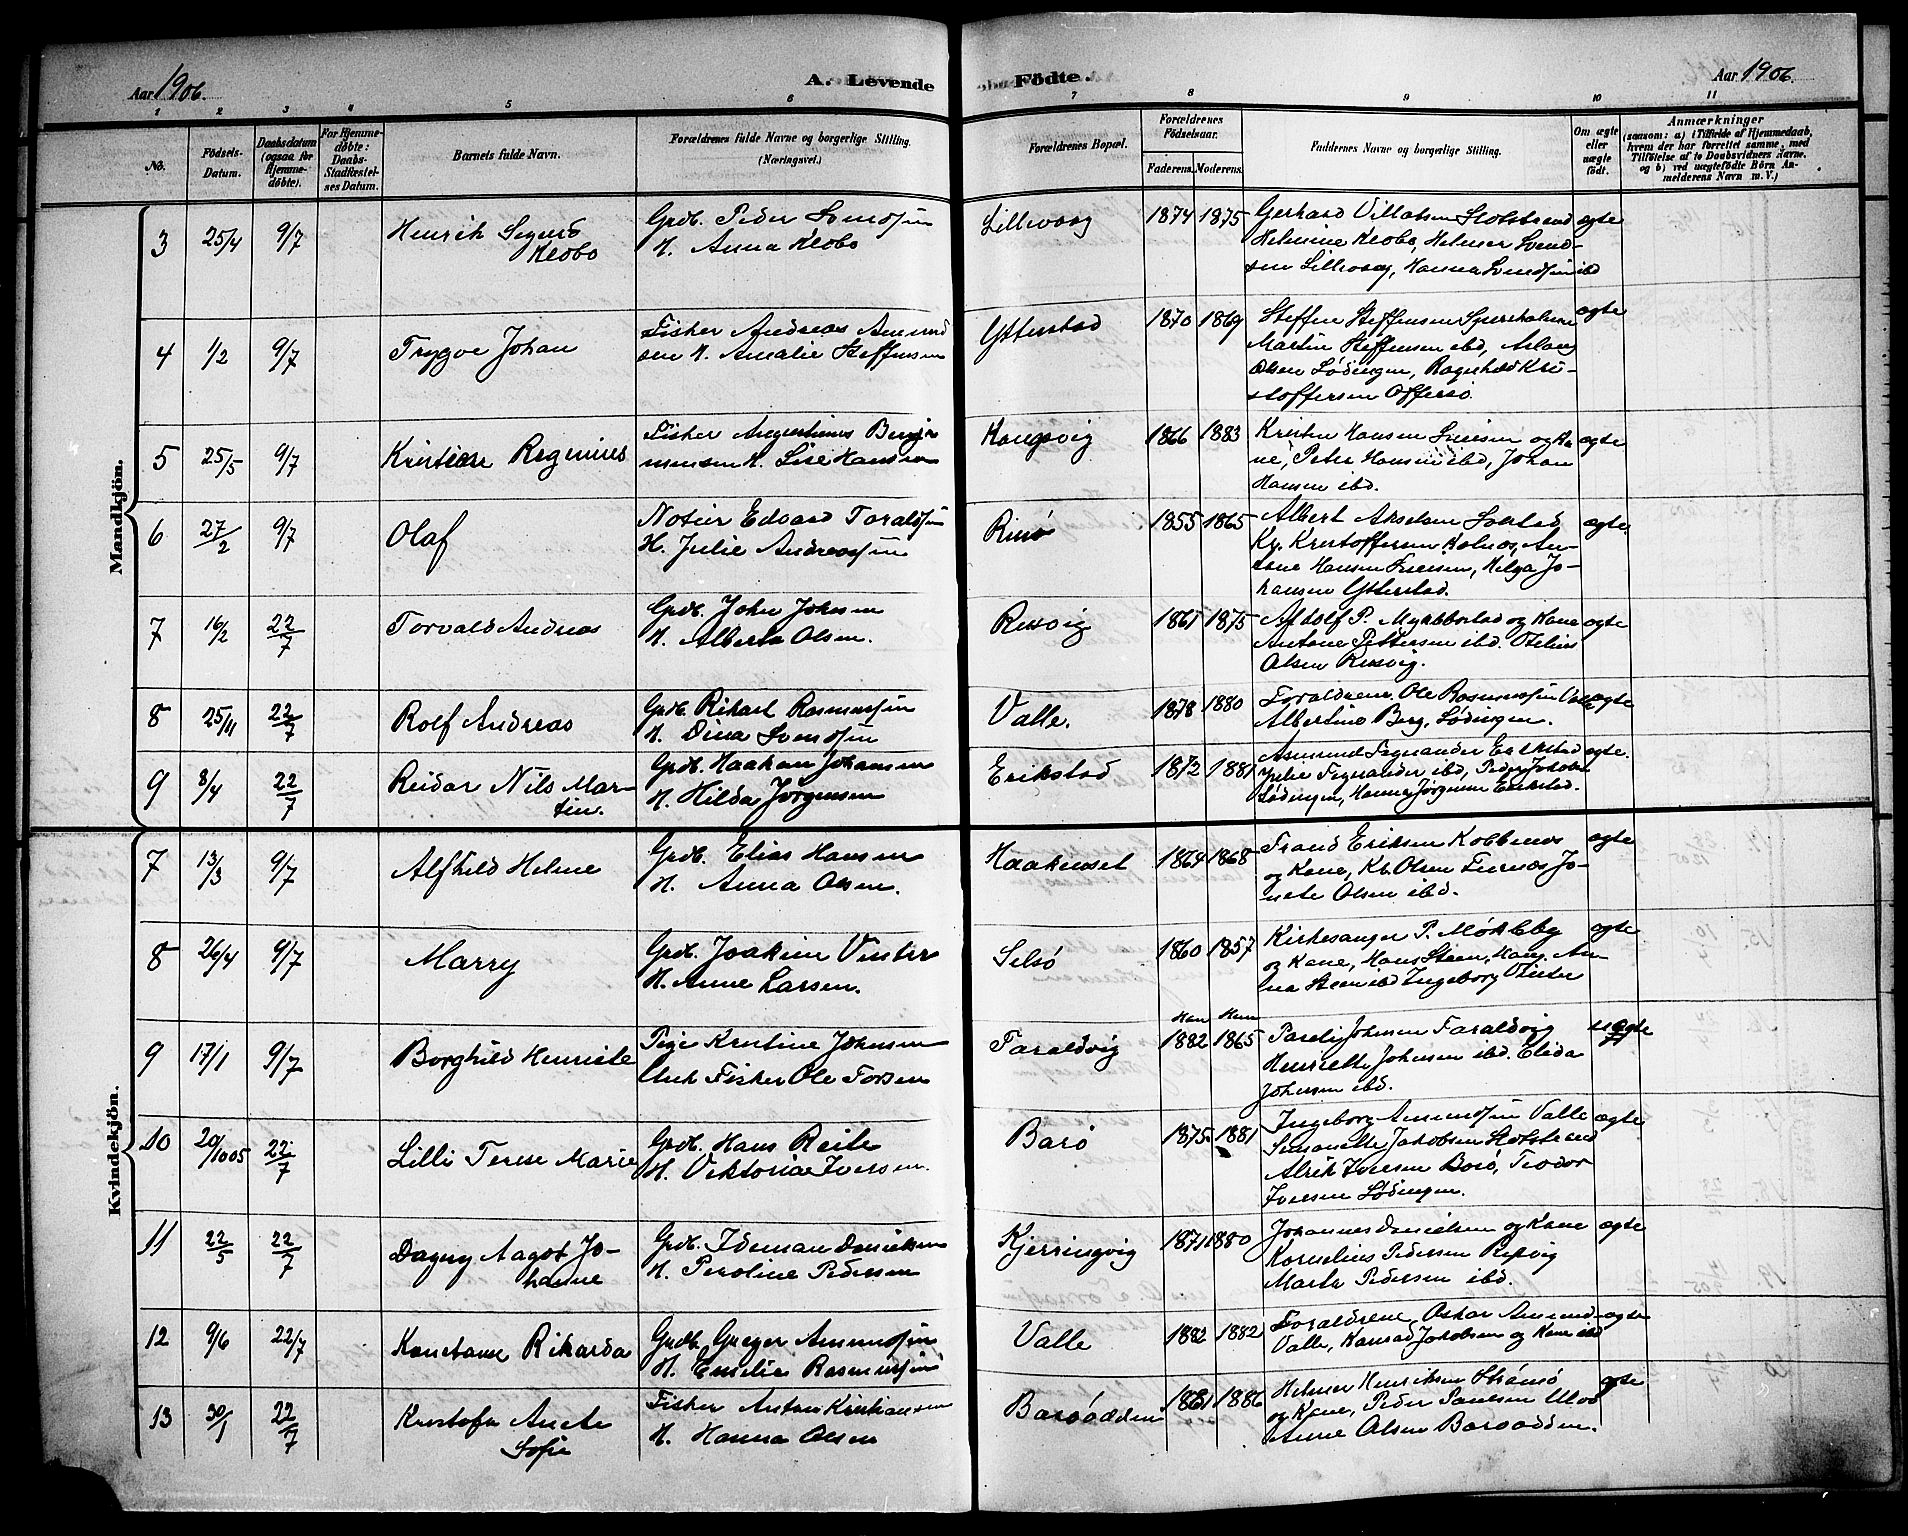 Aar 1906.
A. Levende
Födte.
Aar 1906.
1 2 3 4 5 6 7 8 9 10 11
No.
Födsels-
Datum.
Daabsdatum
(ogsaa for
Hjemme-
døbte).
For Hjemme-
døbte:
Daabs-
Stadfæstel-
ses Datum.
Barnets fulde Navn.
Forældrenes fulde Navne og borgerlige Stilling.
(Næringsvei.)
Forældrenes Bopæl.
Forældrenes
Födselsaar.
Faderens. Moderens.
Faddernes Navne og borgerlige Stilling.
Om ægte
eller
uægte
födt.
Anmærkninger
(saasom: a) i Tilfælde af Hjemmedaab,
hvem der har forrettet samme, med
Tilföielse af to Daabsvidners Navne,
og b) ved uægtefödte Börn An-
melderens Navn m. V.)
Mandkjön.
3 25/4 9/7 Henrik Sigurd
Kleobo
Grdb. Peder Svendsen
H. Anna Kleobo
Lillevaag 1874 1875
Gerhard Villatsen Stolstrand
Helmine Kleobo, Helmer Svend-
sen Lillevaag, Hanna Svendsen ibd
ægte
4 1/2 9/7 Trygve Johan
Fisker Andreas Amund
sen H. Amalie Steffensen
Ytterstad 1870 1869
Steffen Steffensen
Martin Steffensen ibd, Aslaug
Olsen Lødingen, Ragnhild Kri-
stoffersen Offersø.
ægte
5 25/5 9/7 Kristian Reginius
Fisker Augustinus Benja
mensen H. Lise Hansen
Kongsvig 1866 1883
Kristen Hansen og Ko
ne, Peter Hansen ibd, Johan
Hansen ibd.
ægte
6 27/2 9/7 Olaf
Notier Edvard Toraldsen
H. Julie Andreassen
Rinø 1855 1865
Albert Akselsen
Kr. Kristoffersen Kalnes, An-
Hansen Helga Jo-
hansen Ytterstad.
ægte
7 16/2 22/7 Torvald Andreas
Grdb. John Johnsen
H. Alberta Olsen.
Resvig 1861 1875
Adolf P. og Kone
Antone Pettersen ibd. Otelius
Olsen Resvig.
ægte
8 25/11 22/7 Rolf Andreas
Grdb. Rikart Rasmussen
H. Dina Svendsen
Valle. 1878 1880
Forældrene, Ole Rasmussen Valle
Albertine Berg, Lødingen.
ægte
9 3/4 22/7 Reidar Nils Mar-
tin.
Grdb. Haakon Johansen
H. Hilda Jørgensen
Erikstad 1872 1881
Amund Fygnander Erikstad
Julie Fygnander ibd, Peder Jakobs
Lødingen, Hanna Jørgensen Erikstad.
ægte.
Kvindekjön.
7 13/3 9/7 Alfhild Helene
Grdb. Elias Hansen
H. Anna Olsen.
Haakenset 1864 1868
Trand Eriksen Kobbenes
og Kone, Kr. Olsen Furnes, Jo-
nete Olsen ibd.
ægte
8 26/4 9/7 Marry
Grdb. Joakim Vinter
H. Anne Larsen.
Selsø 1860 1857
Kirkesanger P. Møkleby
og Kone, Hans Steen, Hamn. An-
na Steen ibd Ingeborg Vinter
ægte
9 17/1 9/7 Borghild Henriete
Pige Kristine Johnsen
Unk. Fisker Ole Torsen
Taraldvig
Han Hun
1882 1865
Pareli Johnsen Taraldvig
Henriette Johnsen ibd. Elida
Johnsen ibd.
uægte
10 20/10 05 22/7 Lilli Terese Marie
Grdb. Hans Reite
H. Viktoria Iversen.
Barø 1875 1881
Ingeborg Amundsen Valle
Simonette Jakobsen Stolstrand
Alrik Iversen Barø, Teodor
Iversen Lødingen.
ægte
11 22/5 22/7 Dagny Aagot Jo-
hanne
Grdb. Ideman Danielsen
H. Peroline Pedersen
Kjerringvig 1871 1880
Johannes Danielsen og Kone
Kornelius Pedersen Resvig
Marta Pedersen ibd.
ægte
12 9/6 22/7 Konstanse Rikarda
Grdb. Greger Amundsen
H. Emilie Rasmussen
Valle 1882 1882
Forældrene, Oskar Amund-
Valle, Konrad Jakobsen og Kone ibd
ægte
13 30/1 22/7 Kristofa Anete
Sofie
Fisker Anton Kristiansen
H. Hanna Olsen
Barøodden 1881 1886
Helmer Henriksen Strømø
og Kone, Peder Paulsen
Anne Olsen Barøodden.
ægte